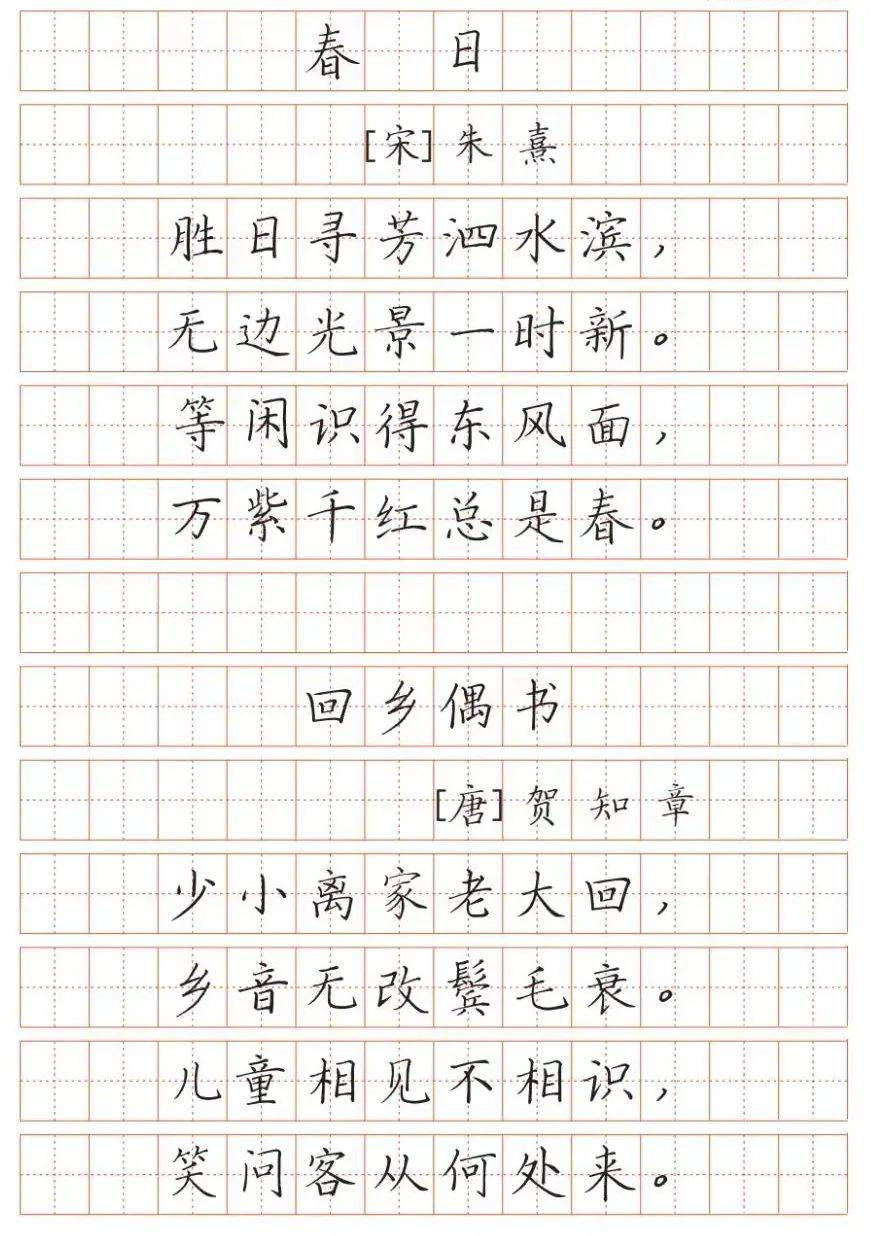 春日
[宋]朱熹
胜日寻芳泗水滨，
无边光景一时新。
等闲识得东风面，
万紫千红总是春。
回乡偶书
[唐]贺知章
少小离家老大回，
乡音无改鬓毛衰。
儿童相见不相识，
笑问客从何处来。